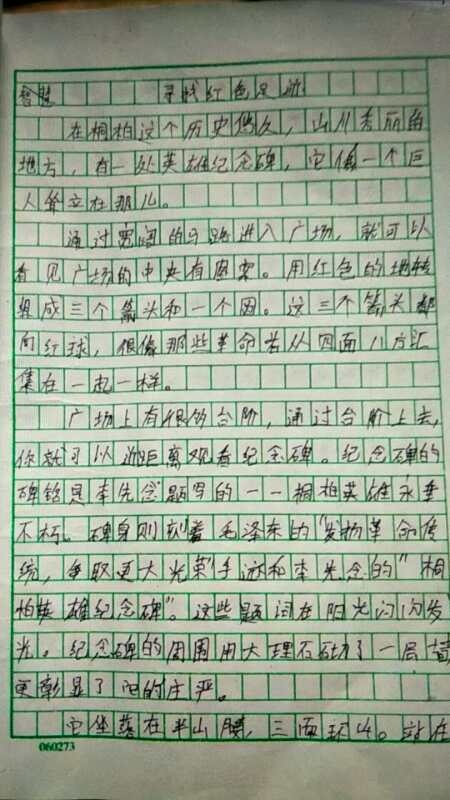 寻找红色足迹
在桐柏这个历史悠久，山川秀丽的
地方，有一处英雄纪念碑，它像一个巨
人耸立在那儿。
通过宽阔的马路进入广场，就可以
看见广场的中央有图案。用红色的地砖
组成三个箭头和一个圆。这三个箭头都
向红球，很像那些革命者从四面八方汇
集在一起一样。
广场上有很多台阶，通过台阶上去，
你就可以近距离观看纪念碑。纪念碑的
碑铭是李先念题写的——桐柏英雄永垂
不朽。碑身则刻着毛泽东的“发扬革命传
统，争取更大光荣”手迹和李先念的“桐
柏英雄纪念碑”。这些题词在阳光闪闪发
光。纪念碑的周围用大理石砌了一层
更彰显了的庄严。
它坐落在半山腰，三面环山。站在
060273